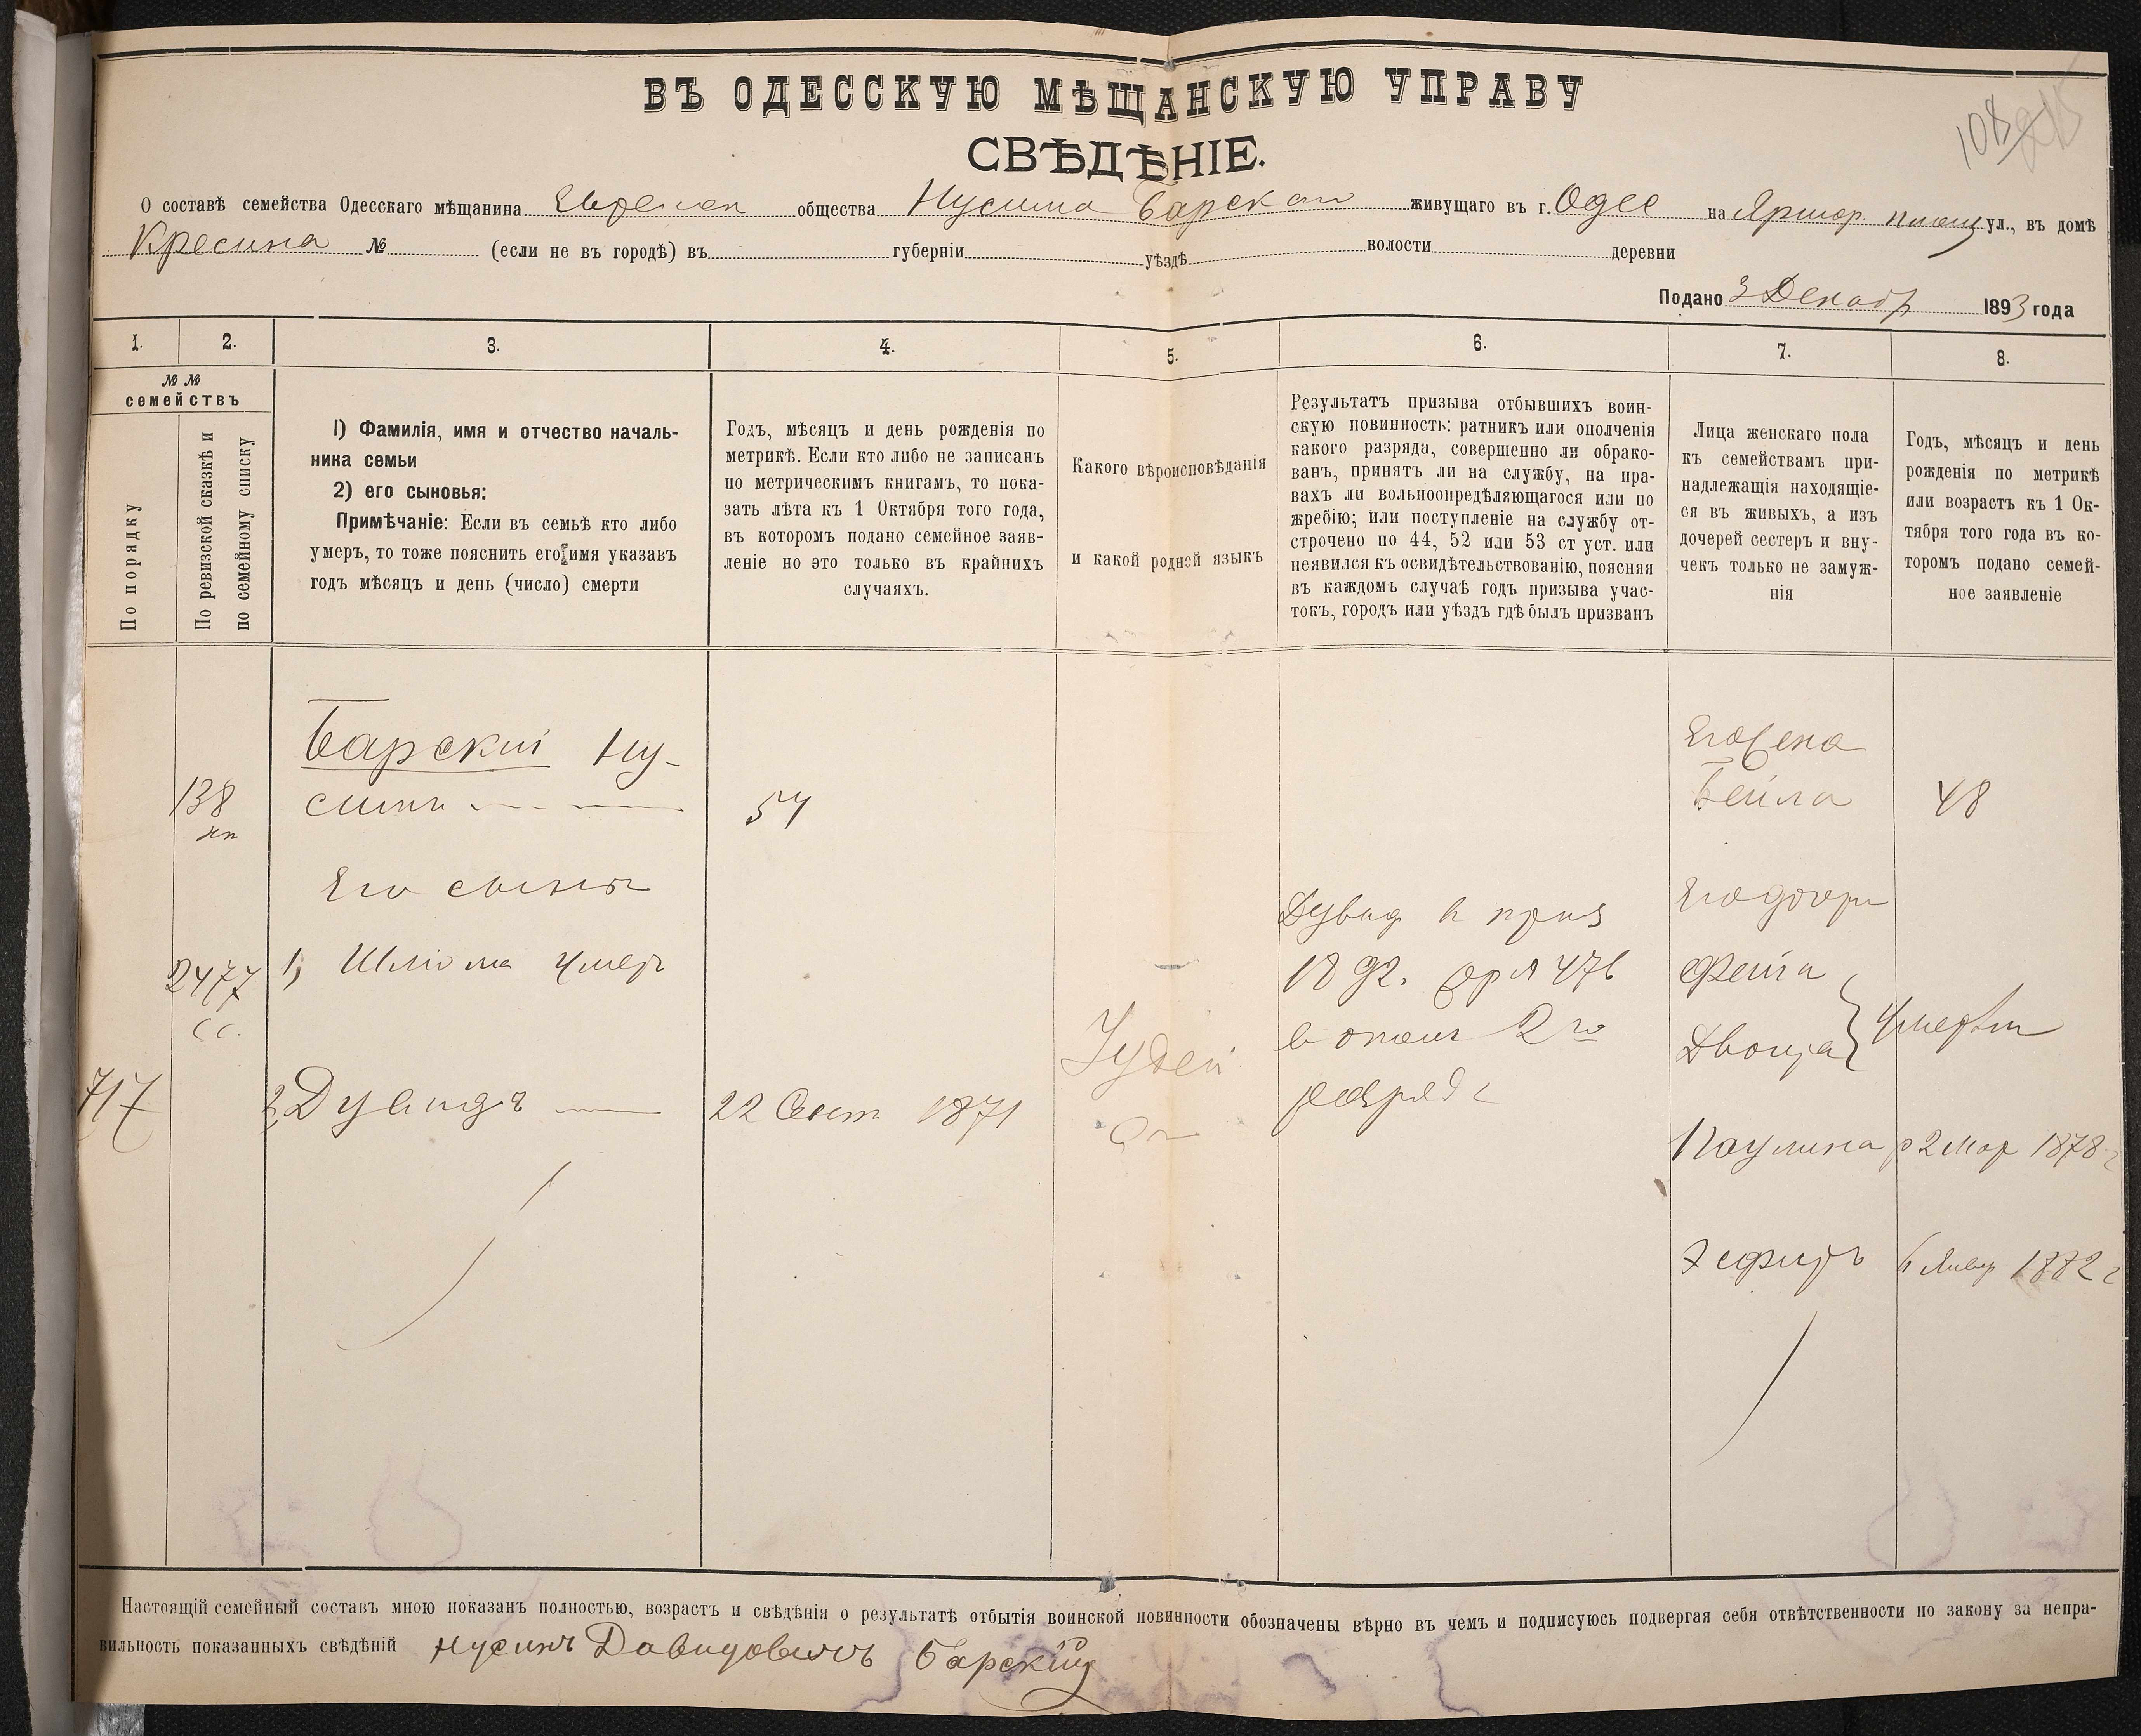 ВЪ ОДЕССКУЮ МѢЩАНСКУЮ УПРАВУ
СВѢДѢНІЕ.
108
О составѣ семейства Одесскаго мѣщанина Евреиск общества Нусина Барскаг живущаго въ г. Одес на Ярмор. площ ул., въ домѣ
Кресина № (если не въ городѣ) въ губерніи уѣздѣ волости деревни
Подано 3 Декабр 1893 года
1. 2. 3. 4. 5. 6. 7. 8.
№ №
семействъ
По порядку
По ревизской сказкѣ и
по семейному списку
1) Фамилія, имя и отчество началь-
ника семьи
2) его сыновья:
Примѣчаніе: Если въ семьѣ кто либо
умеръ, то тоже пояснить его имя указавъ
годъ мѣсяцъ и день (число) смерти
Годъ, мѣсяцъ и день рожденія по
метрикѣ. Если кто либо не записанъ
по метрическимъ книгамъ, то пока-
зать лѣта къ 1 Октября того года,
въ которомъ подано семейное заяв-
леніе но это только въ крайнихъ
случаяхъ.
Какого вѣроисповѣданія
и какой родной языкъ
Результатъ призыва отбывшихъ воин-
скую повинность: ратникъ или ополченія
какого разряда, совершенно ли обрако-
ванъ, принятъ ли на службу, на пра-
вахъ ли вольноопредѣляющагося или по
жребію; или поступленіе на службу от-
строчено по 44, 52 или 53 ст уст. или
неявился къ освидѣтельствованію, поясняя
въ каждомъ случаѣ годъ призыва учас-
токъ, городъ или уѣздъ гдѣ былъ призванъ
Лица женскаго пола
къ семействамъ при-
надлежащія находящіе-
ся въ живыхъ, а изъ
дочерей сестеръ и вну-
чекъ только не замуж-
нія
Годъ, мѣсяцъ и день
рожденія по метрикѣ
или возрастъ къ 1 Ок-
тября того года въ ко-
торомъ подано семей-
ное заявленіе
Барскій Ну-
138 синъ 54
Его сыновя
2477 1, Шліома умер
сс.
717 2, Дувидъ 22 Сент 1871
Іудей
Дувид в приз
1892. жр № 476
в ополч 2го
разряд
Его жена
Бейла 48
Его дочери
Фейга
Двойра } умерли
Паулина р 2 Мар 1878 г
Эсфирь 6 Январ 1882 г
Настоящій семейный составъ мною показанъ полностью, возрастъ и свѣдѣнія о результатѣ отбытія воинской повинности обозначены вѣрно въ чемъ и подписуюсь подвергая себя отвѣтственности по закону за непра-
вильность показанныхъ свѣдѣній Нусинъ Давидовичъ Барскій